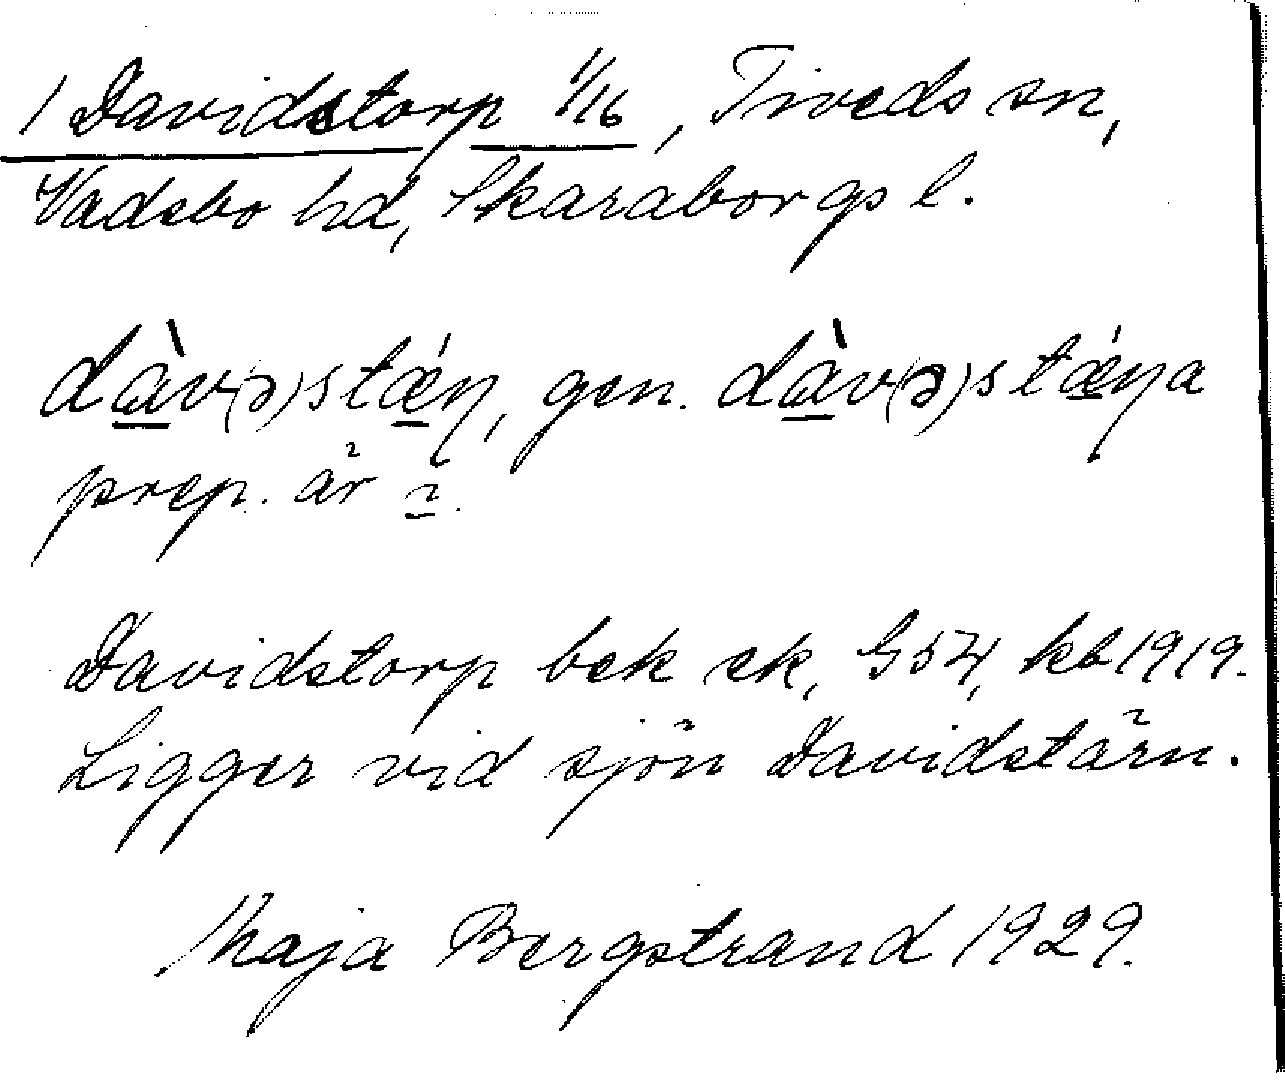 1 Davidstorp 1/16, Tiveds sn,
Vadsbo hd, Skaraborgs l.
dàv(ə)stǽŋ, gen. dàv(ə)stǽŋa
prep. är i.
Davidstorp bek ek, G54, kb 1919.
Ligger vid sjön Davidstärn.
Maja Bergstrand 1929.